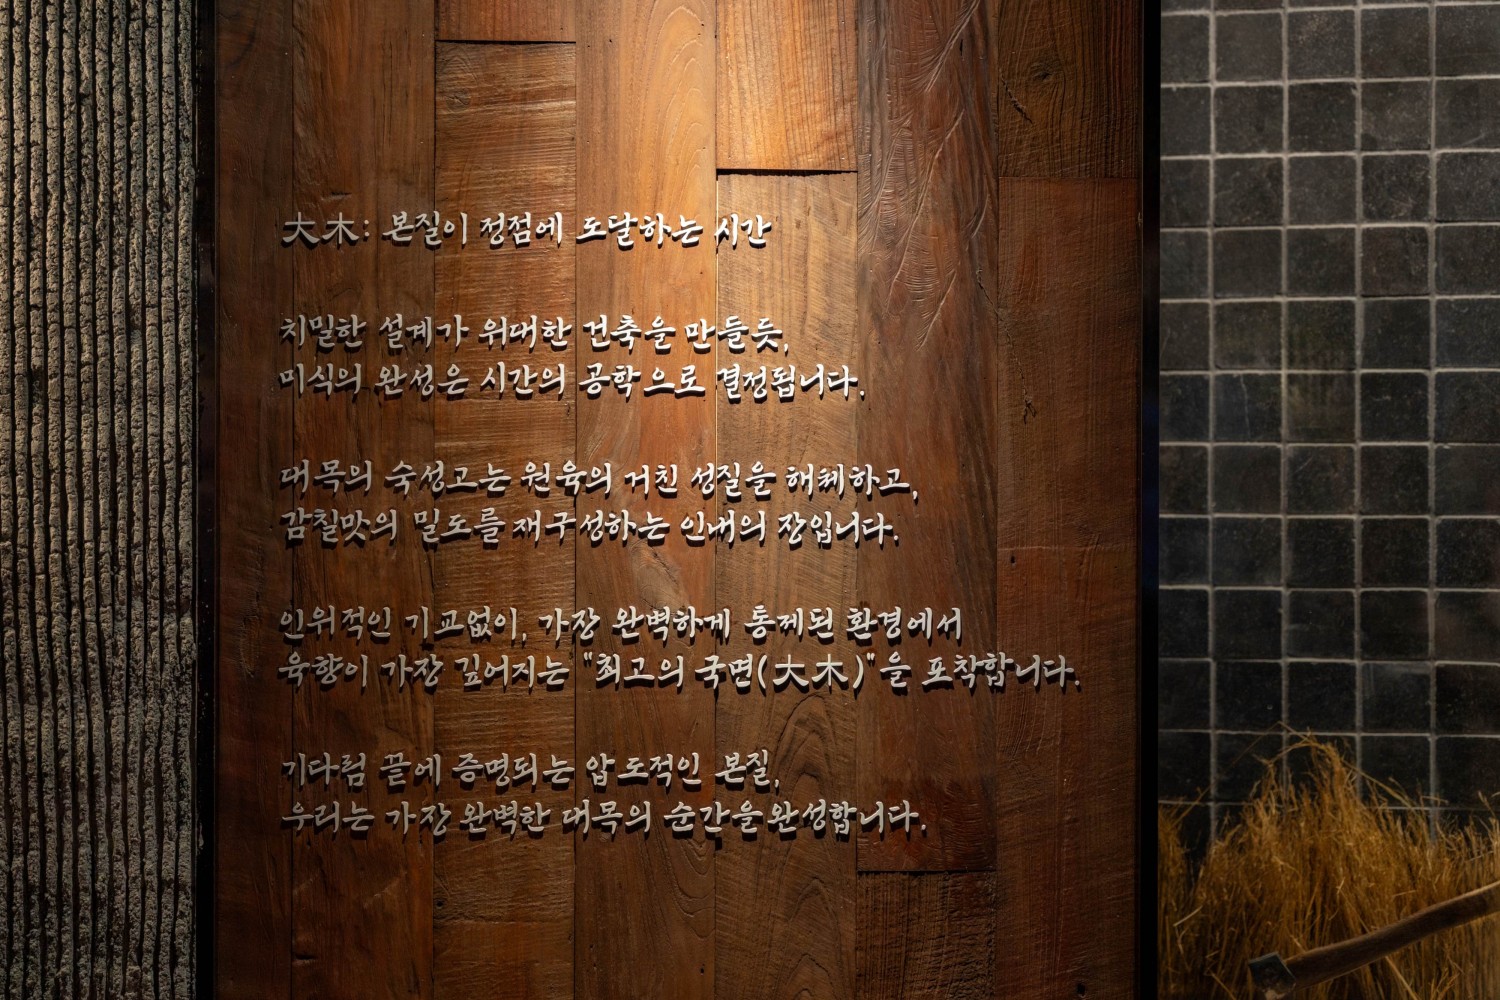 大木: 본질이 정점에 도달하는 시간
치밀한 설계가 위대한 건축을 만들듯,
미식의 완성은 시간의 공학으로 결정됩니다.
대목의 숙성고는 원육의 거친 성질을 해체하고,
감칠맛의 밀도를 재구성하는 인내의 장입니다.
인위적인 기교없이, 가장 완벽하게 통제된 환경에서
육향이 가장 깊어지는 "최고의 국면(大木)"을 포착합니다.
기다림 끝에 증명되는 압도적인 본질,
우리는 가장 완벽한 대목의 순간을 완성합니다.